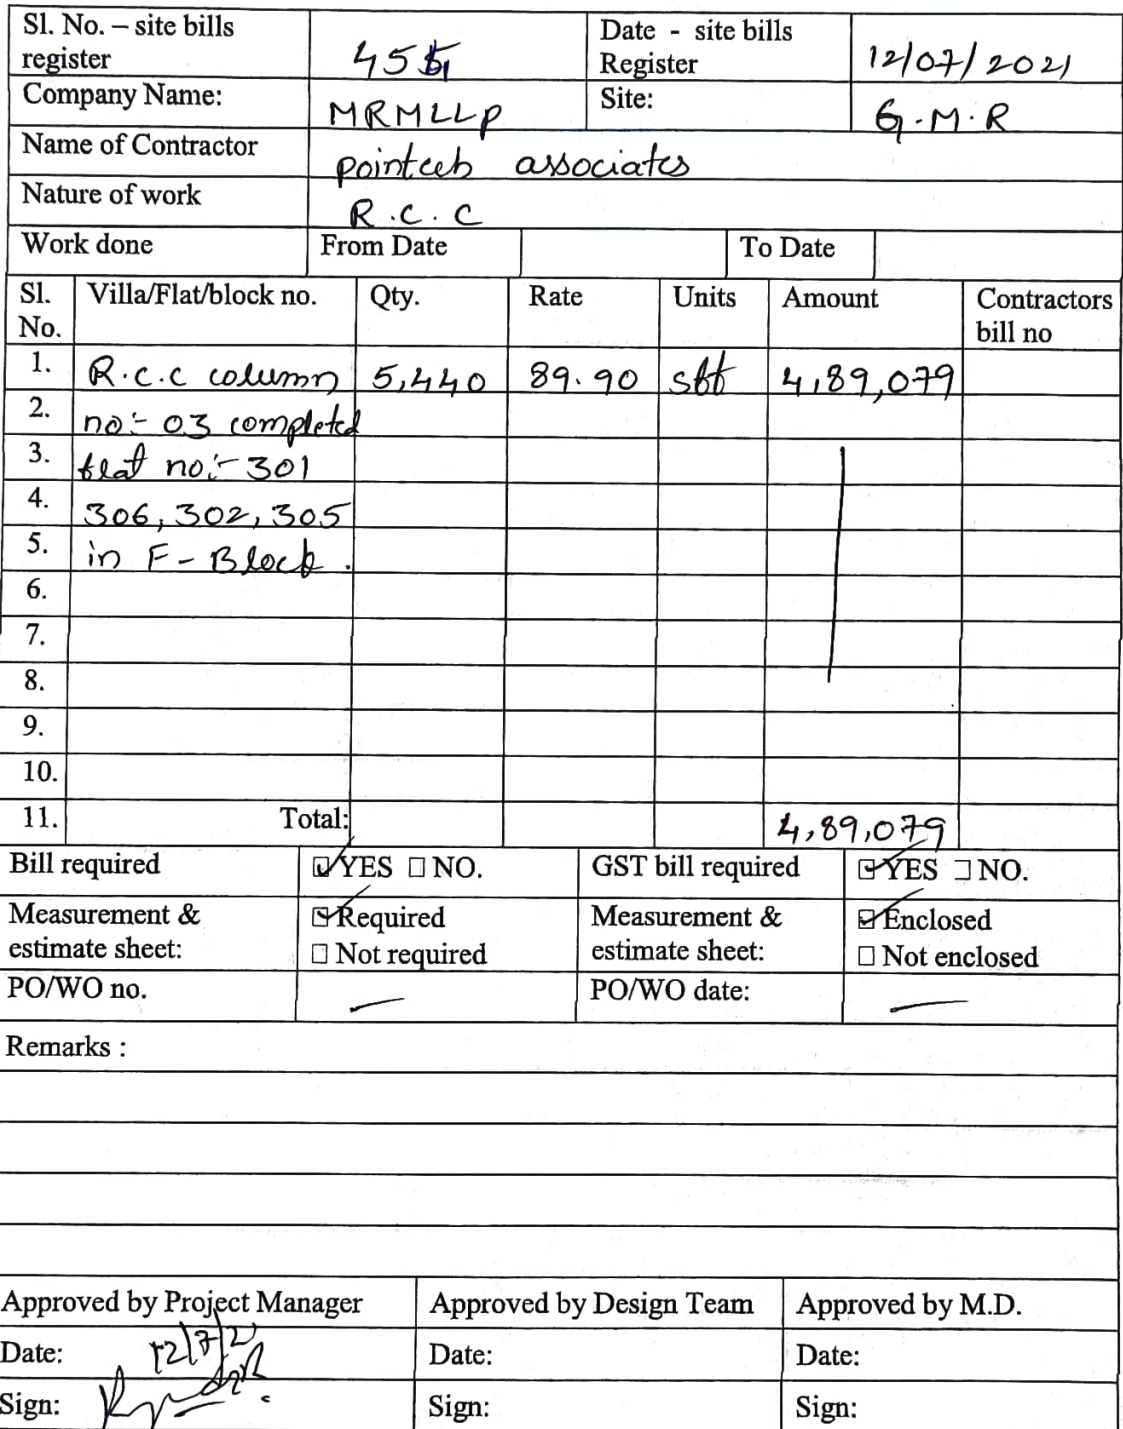 Sl. No. – site bills register 455 Date - site bills Register 12/07/2021
Company Name: MRMLLP Site: G.M.R
Name of Contractor associates
Nature of work R.C.C
Work done From Date To Date
Sl. No. Villa/Flat/block no. Qty. Rate Units Amount Contractors bill no
1. R.c.c column 5,440 89.90 sft 4,89,079
2. no:- 03 completed
3. flat no:- 301
4. 306, 302, 305
5. in F - Block .
6.
7.
8.
9.
10.
11. Total: 4,89,079
Bill required ☑ YES ☐ NO. GST bill required ☑ YES ☐ NO.
Measurement & estimate sheet: ☑ Required ☐ Not required Measurement & estimate sheet: ☑ Enclosed ☐ Not enclosed
PO/WO no. — PO/WO date: —
Remarks :
Approved by Project Manager Approved by Design Team Approved by M.D.
Date: 12/7/21 Date: Date:
Sign: Sign: Sign: